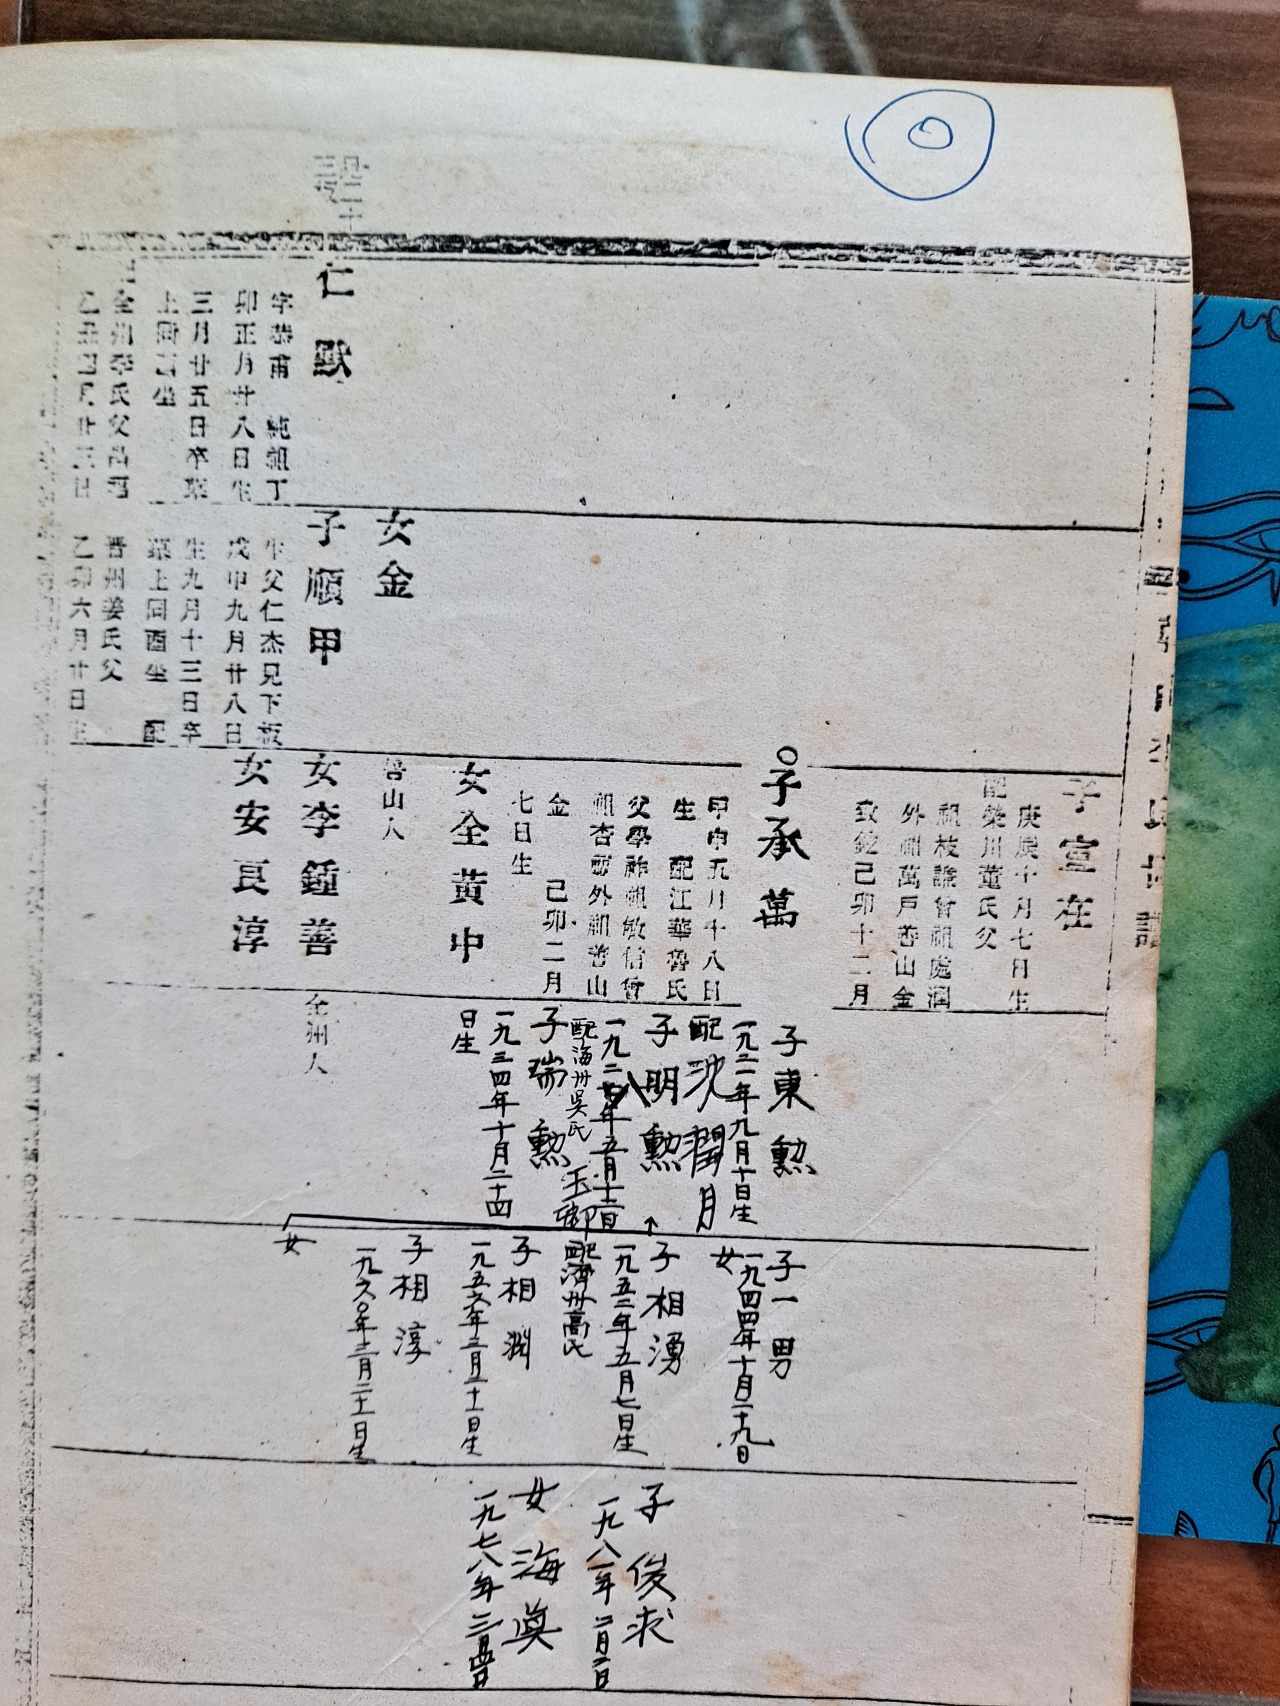 仁默
字恭甫 純祖丁
卯正月廿八日生
三月廿五日卒墓
上同 坐
全州李氏父昌
乙丑四月廿三日
女金
子順甲
生父仁杰兄下板
戊申九月廿八日
生九月十三日卒
墓上同酉坐 配
晋州姜氏父
乙卯六月廿日生
子宣在
庚辰十月七日生
配榮川董氏父
祖枝謙曾祖處潤
外祖萬戶善山金
致鉉己卯十二月
子承萬
甲申五月十八日
生 配江華魯氏
父學祚祖敏信曾
祖杏 外祖善山
金 己卯二月
七日生
女全黃中
善山人
女李鍾善
全州人
女安良淳
子東勲
一九二一年九月十日生
配沈潤月
子明勲
一九二八年五月十二日
配海州吳氏 玉卿
子瑞勲
一九三四年十月二十四
日生
子一男
一九四四年十月二十九日
女
子相湧
一九五二年五月七日生
配濟州高氏
子相淵
一九五六年三月二十日生
子相淳
一九六〇年三月二十一日生
女
子俊求
一九八一年二月二日
女海眞
一九七八年三月